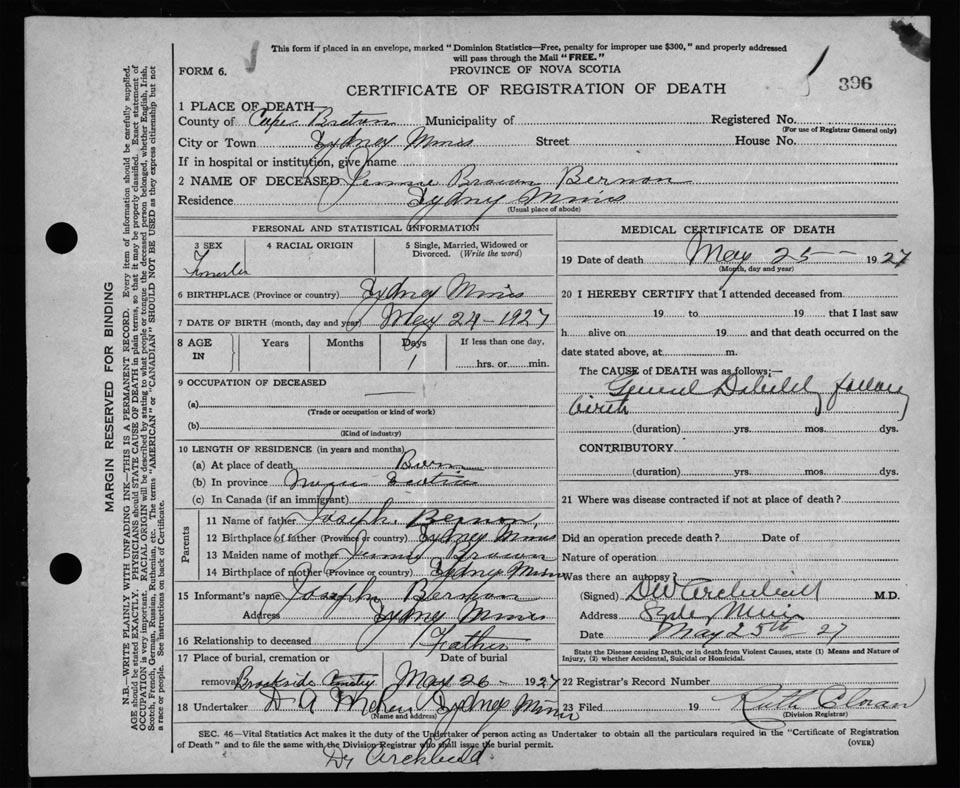 This form if placed in an envelope, marked "Dominion Statistics—Free, penalty for improper use $300," and properly addressed
will pass through the Mail "FREE."
FORM 6.
PROVINCE OF NOVA SCOTIA
396
CERTIFICATE OF REGISTRATION OF DEATH
1 PLACE OF DEATH
County of Cape Breton Municipality of Registered No.
(For use of Registrar General only)
City or Town Sydney Mines Street House No.
If in hospital or institution, give name
2 NAME OF DECEASED Jennie Brown Bernon
Residence Sydney Mines
(Usual place of abode)
PERSONAL AND STATISTICAL INFORMATION
3 SEX 4 RACIAL ORIGIN 5 Single, Married, Widowed or
Divorced. (Write the word)
6 BIRTHPLACE (Province or country) Sydney Mines
7 DATE OF BIRTH (month, day and year) May 24 - 1927
8 AGE IN Years Months Days If less than one day,
1 hrs. or min.
9 OCCUPATION OF DECEASED
(a)
(Trade or occupation or kind of work)
(b)
(Kind of industry)
10 LENGTH OF RESIDENCE (in years and months)
(a) At place of death Born
(b) In province Nova Scotia
(c) In Canada (if an immigrant)
Parents
11 Name of father Joseph Bernon,
12 Birthplace of father (Province or country) Sydney Mines
13 Maiden name of mother Jennie Brown
14 Birthplace of mother (Province or country) Sydney Mines
15 Informant's name Joseph Bernon
Address Sydney Mines
16 Relationship to deceased Father
17 Place of burial, cremation or Date of burial
removal Brookside Cemetry May 26 - 1927
18 Undertaker D A Sydney Mines
(Name and address)
MEDICAL CERTIFICATE OF DEATH
19 Date of death May 25 — 1927
(Month, day and year)
20 I HEREBY CERTIFY that I attended deceased from
19 to 19 that I last saw
h alive on 19 and that death occurred on the
date stated above, at m.
The CAUSE of DEATH was as follows:—
General Debility following
birth
(duration) yrs. mos. dys.
CONTRIBUTORY
(duration) yrs. mos. dys.
21 Where was disease contracted if not at place of death?
Did an operation precede death? Date of
Nature of operation
Was there an autopsy?
(Signed) DW Archibald M.D.
Address Mines
Date May 25th - 27
State the Disease causing Death, or in death from Violent Causes, state (1) Means and Nature of
Injury, (2) whether Accidental, Suicidal or Homicidal.
22 Registrar's Record Number
23 Filed 19 Ruth
(Division Registrar)
SEC. 46—Vital Statistics Act makes it the duty of the Undertaker or person acting as Undertaker to obtain all the particulars required in the "Certificate of Registration
of Death" and to file the same with the Division Registrar who shall issue the burial permit.
(OVER)
Dr Archibald
MARGIN RESERVED FOR BINDING
N.B.—WRITE PLAINLY WITH UNFADING INK—THIS IS A PERMANENT RECORD. Every item of information should be carefully supplied.
AGE should be stated EXACTLY. PHYSICIANS should STATE CAUSE OF DEATH in plain terms, so that it may be properly classified. Exact statement of
OCCUPATION is very important. RACIAL ORIGIN will be described by stating to what people or tongue the deceased person belonged, whether English, Irish,
Scotch, French, German, Russian, Ruthenian, etc. The terms "AMERICAN" or "CANADIAN" SHOULD NOT BE USED as they express citizenship but not
a race or people. See instructions on back of Certificate.